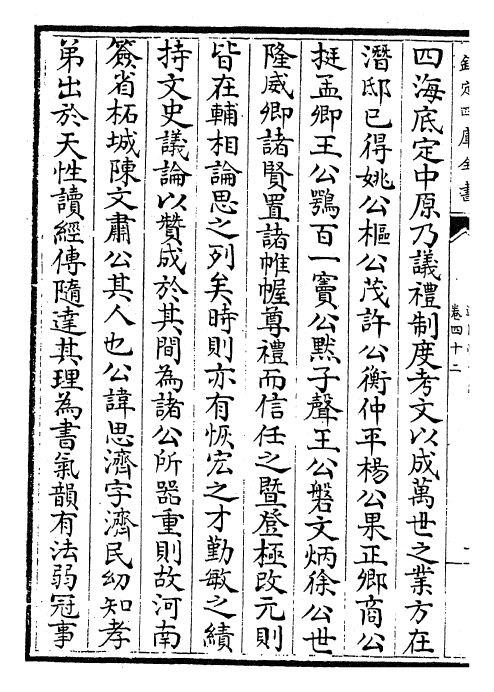 欽定四庫全書
卷四十二
四海底定中原乃議禮制度考文以成萬世之業方在
潛邸已得姚公樞公茂許公衡仲平楊公果正卿商公
挺孟卿王公鶚百一竇公黙子聲王公磐文炳徐公世
隆威卿諸賢置諸帷幄尊禮而信任之暨登極改元則
皆在輔相論思之列矣時則亦有恢宏之才勤敏之績
持文史議論以贊成於其間為諸公所器重則故河南
簽省柘城陳文肅公其人也公諱思濟字濟民幼知孝
弟出於天性讀經傳隨達其理為書氣韻有法弱冠事